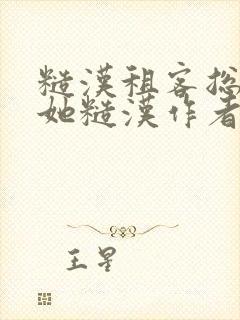 糙漢租客捻
她糙漢作者
王星